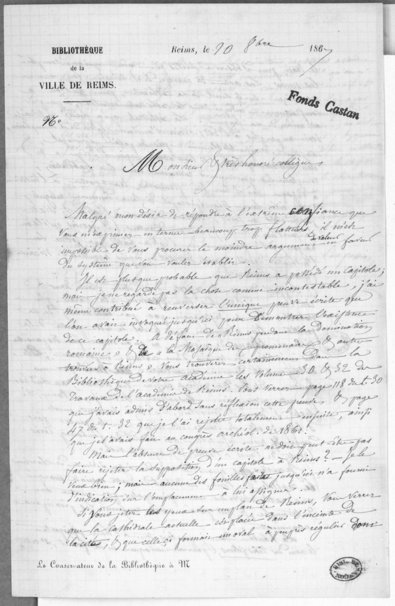 BIBLIOTHÈQUE
de la
VILLE DE REIMS.
Reims, le 20 8bre 1867
Fonds Castan
No
Monsieur & très honoré collègue
Malgré mon désir de répondre à l'extrême confiance que
vous m'exprimez en terme beaucoup trop flatteurs, il m'est
impossible de vous procurer le moindre argument de valeur en faveur
du système que l'on veut établir.
Il est plus que probable que Reims a possédé un capitole;
mais je ne regarde pas la chose comme incontestable, j'ai
même contribué à renverser l'unique preuve écrite que
l'on avait invoquée jusqu'ici pour démontrer l'existence
de ce capitole. A Reims pendant la Domination
romaine » & la « Mosaïque des promenades & autres
trouvées à Reims » Vous trouverez certainement dans la
Bibliothèque de votre académie les volumes 30 & 32 des
travaux de l'académie de Reims. Vous verrez page 118 du t. 30
que j'avais admis d'abord sans réflexion cette preuve, & page
47 du t. 32 que je l'ai rejetée totalement ensuite, ainsi
que je l'avais fait au congrès archéol. de 1861.
Mais l'absence de preuve écrite ne doit peut-être pas
faire rejeter la supposition d'un capitole à Reims? — Je le
veux bien; mais aucune des fouilles faites jusqu'ici n'a fourni
d'indication sur l'emplacement à lui assigner.
Si vous jetez les yeux sur un plan de Reims, vous verrez
que la cathédrale actuelle est placée dans l'enceinte de
la cité, & que celle-ci formait un oval à peu près régulier dont
Le Conservateur de la Bibliothèque à M